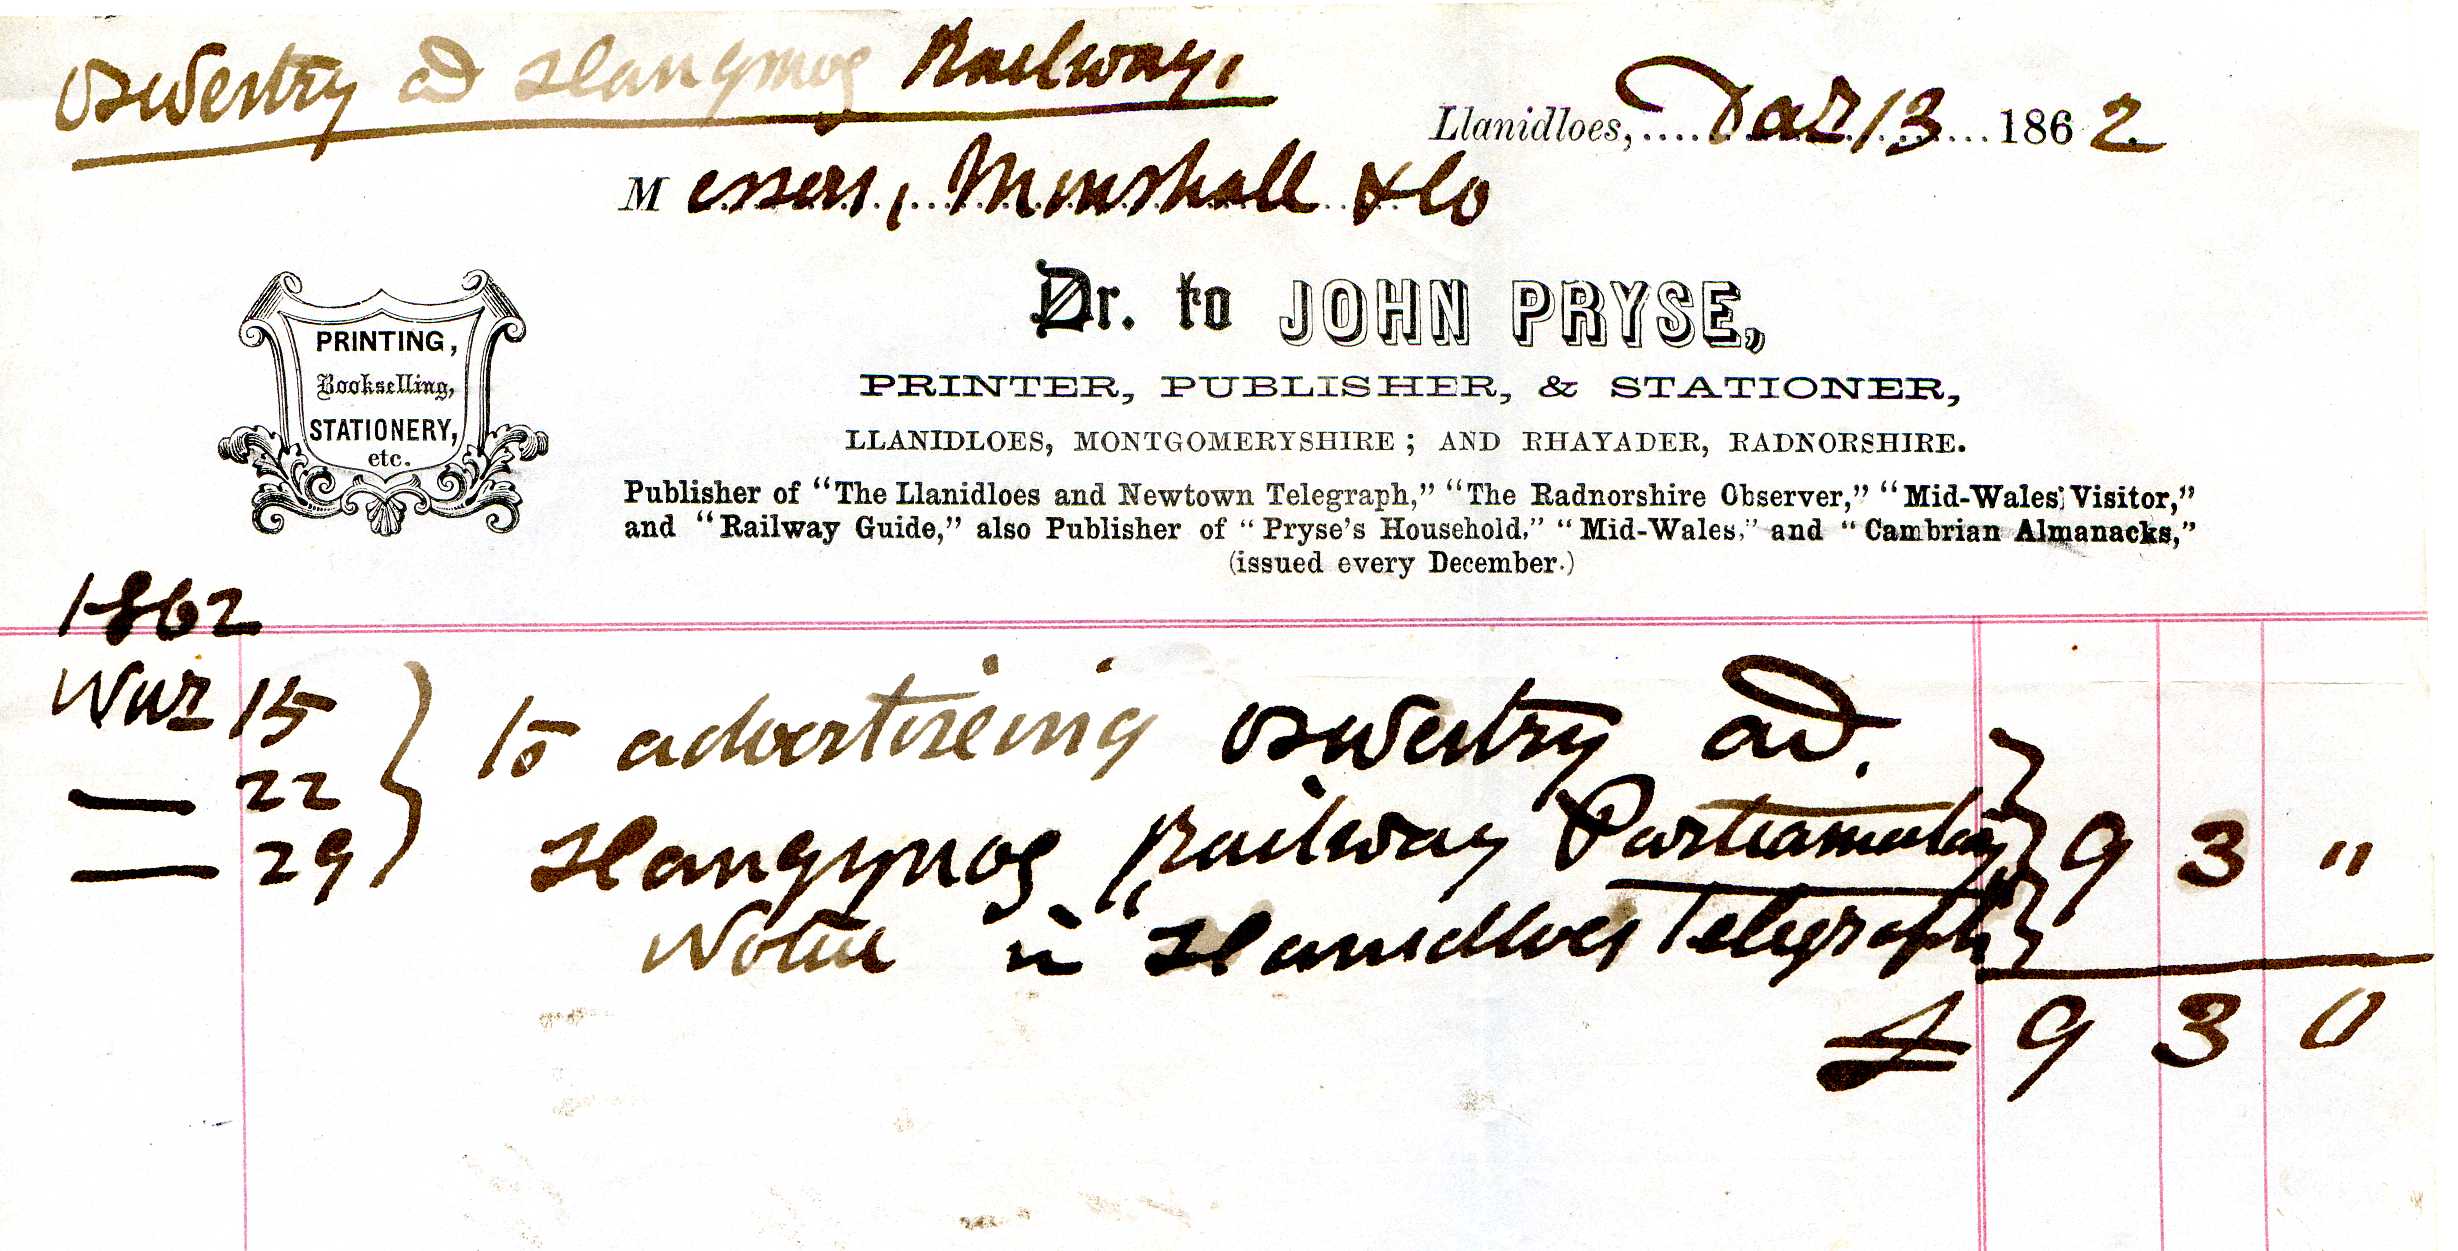 Oswestry and Llangynog Railway.
Llanidloes, Dar 13 1862
Messrs, Minshall & Co
PRINTING,
Bookselling,
STATIONERY,
etc.
Dr. to JOHN PRYSE,
PRINTER, PUBLISHER, & STATIONER,
LLANIDLOES, MONTGOMERYSHIRE; AND RHAYADER, RADNORSHIRE.
Publisher of "The Llanidloes and Newtown Telegraph," "The Radnorshire Observer," "Mid-Wales Visitor,"
and "Railway Guide," also Publisher of "Pryse's Household," "Mid-Wales," and "Cambrian Almanacks,"
(issued every December.)
1862
Nvr 15 To advertiseing Oswestry and
— 22 Llangynog Railway Parliamentary 9 3 "
— 29 Notice in "Llanidloes Telegraph"
£ 9 3 0